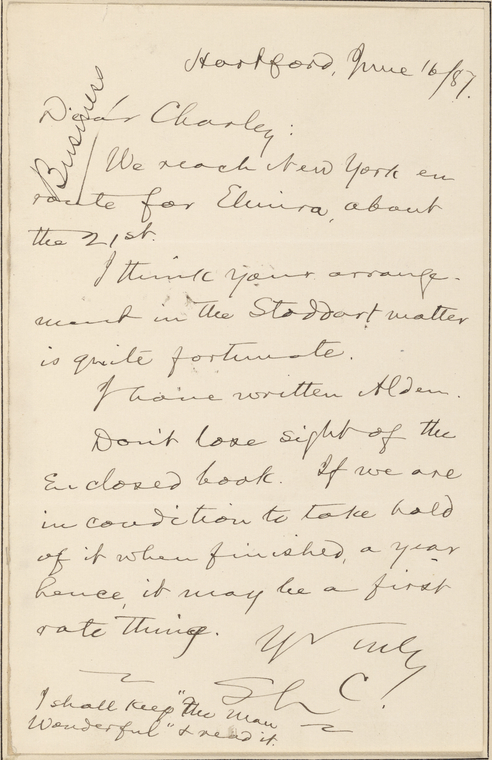 Hartford, June 16/87.
Business
Dear Charley:
We reach New York en
route for Elmira, about
the 21st.
I think your arrange-
ment in the Stoddart matter
is quite fortunate.
I have written Alden.
Don't lose sight of the
enclosed book. If we are
in condition to take hold
of it when finished, a year
hence, it may be a first
rate thing.
Yr Uncle
S L C.
I shall keep "The Man
Wonderful" & read it.